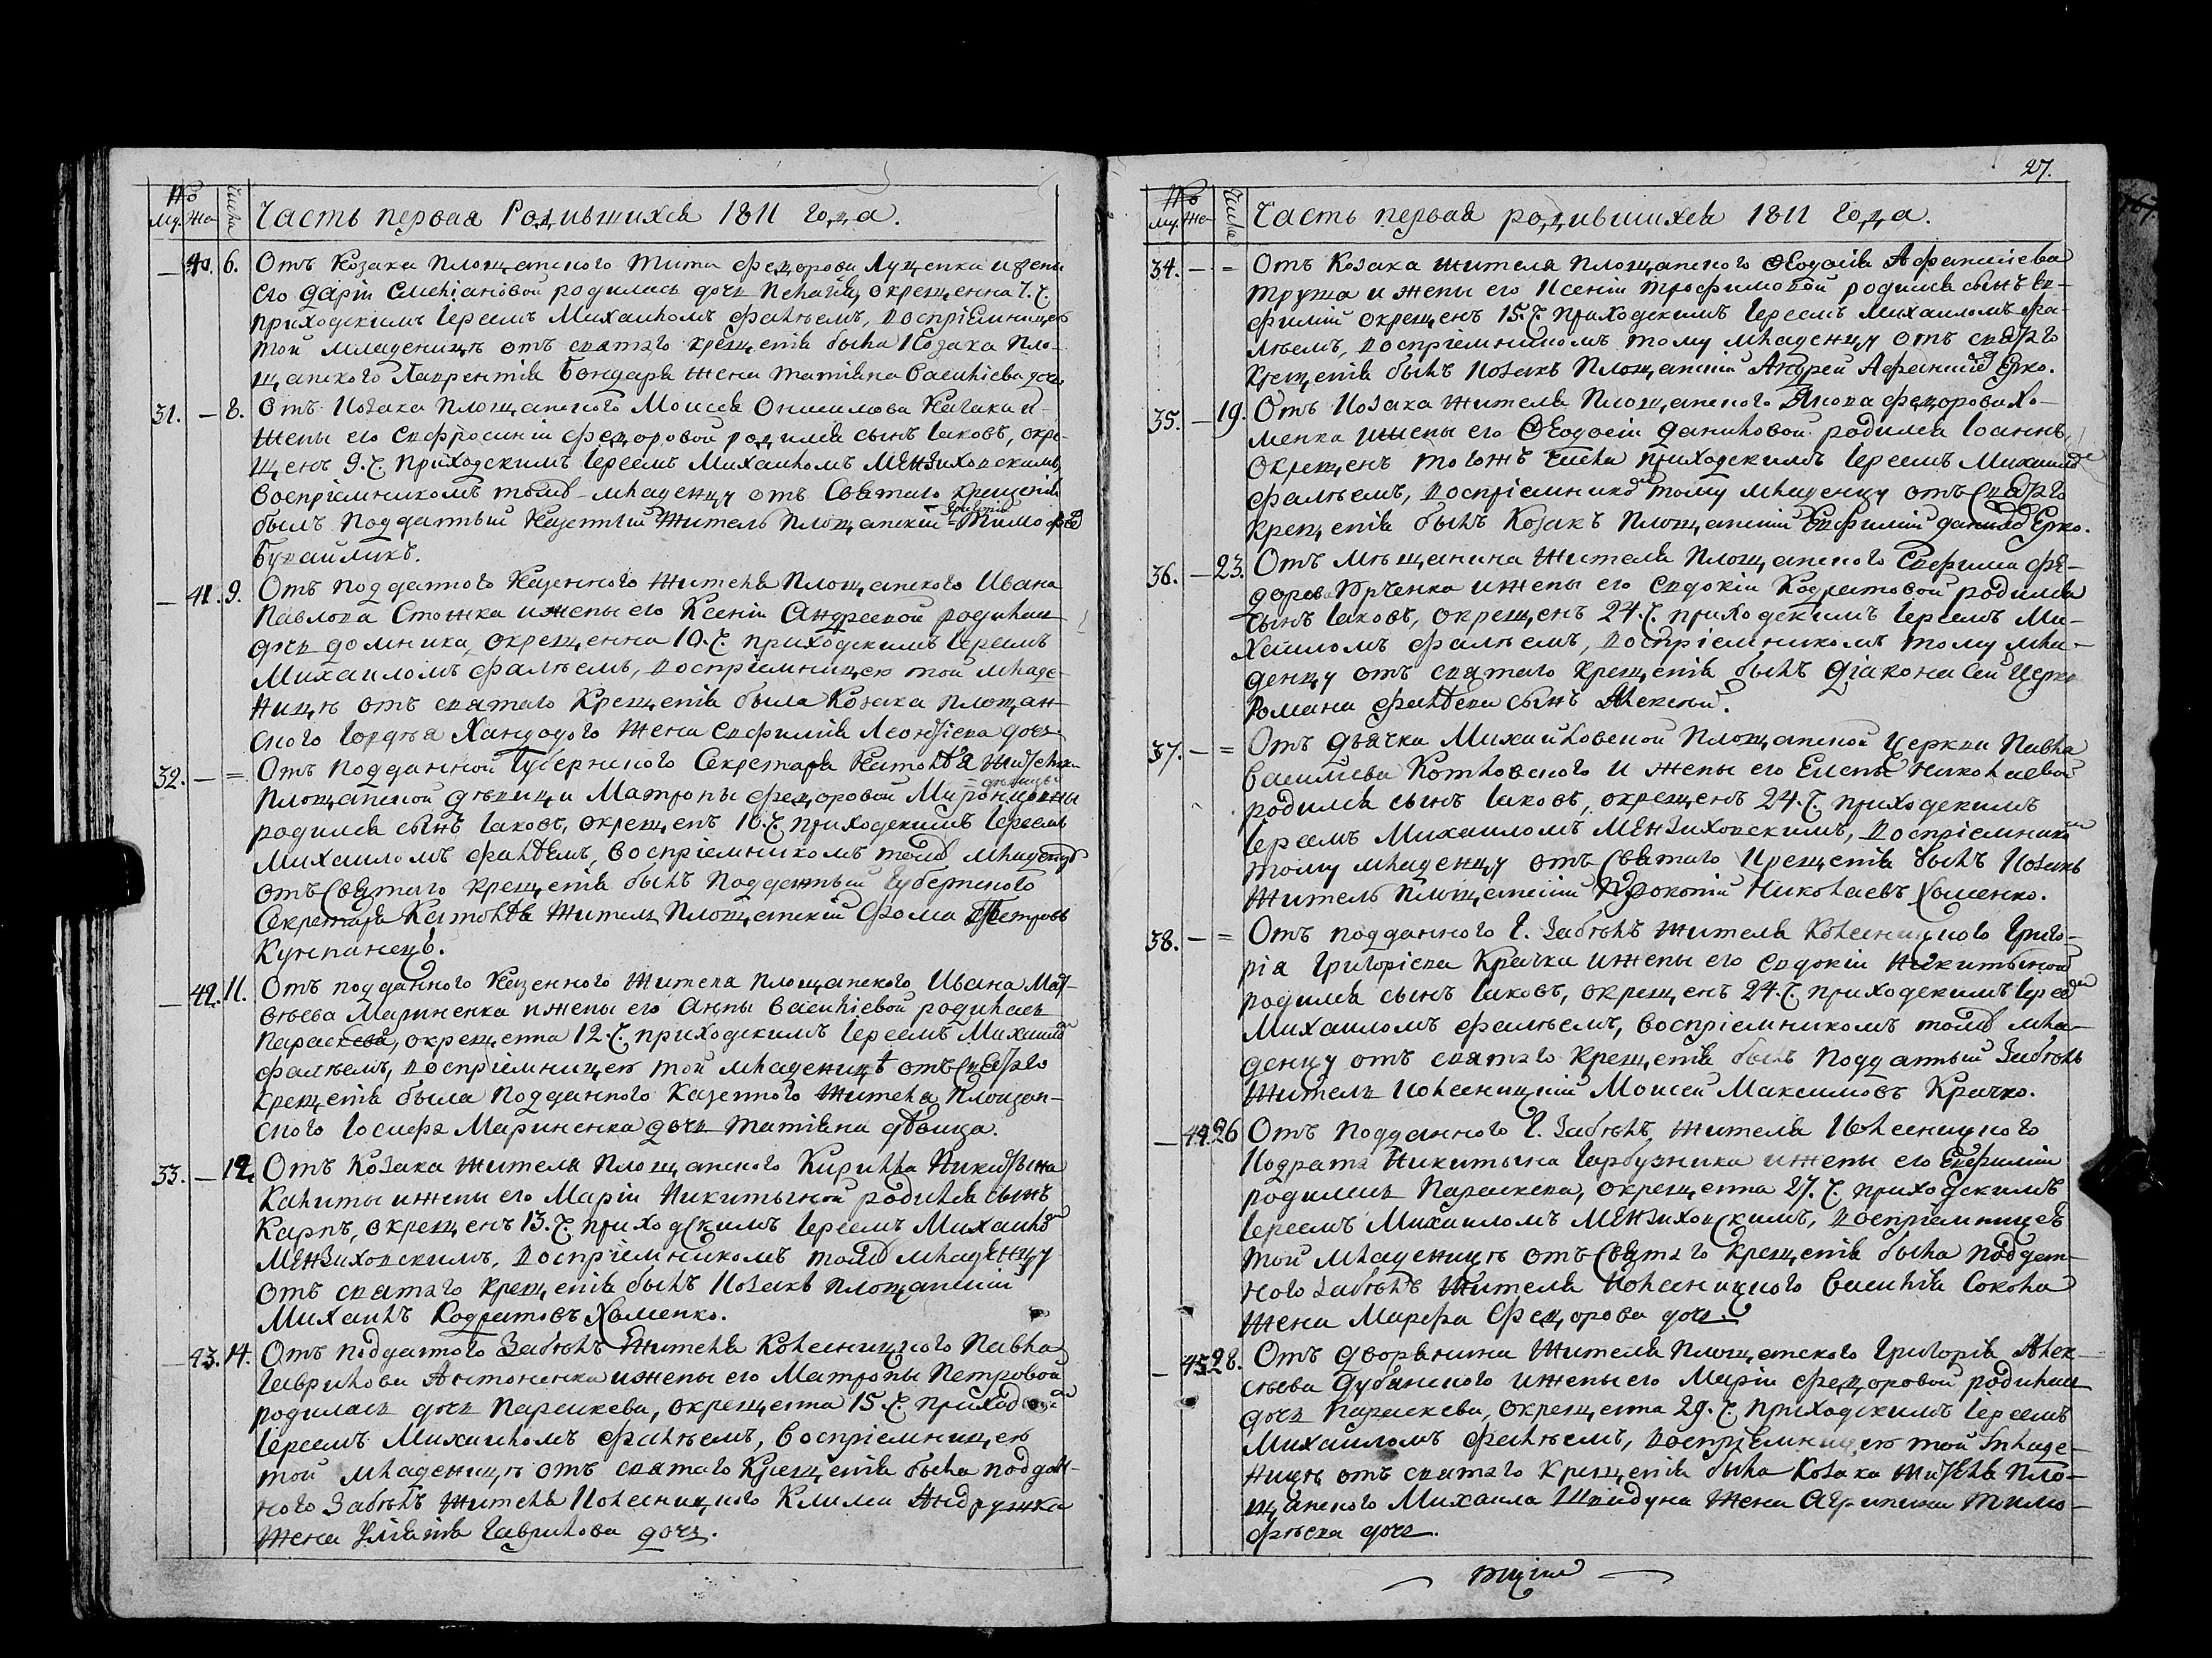 №
Му. Же Числа Часть первая Родившихся 1811 года.
— 40. 6. Отъ Козака площанского Тита Федорова Луценка и жены
его Даріи Смеһіановой родилась дочь Пелагія, окрещенна 7. Ч.
приходскимъ Іереемъ Михаиломъ Фалѣемъ, воспріемницею
той младеницѣ отъ святаго крещенія была Козака Пло-
щанского Лаврентія Бондаря жена Татіана Василіева дочь
31. — 8. Отъ Козака площанского Моисея Онисимова и
жены его Евфросиніи Федоровой родился сынъ Іаковъ, окре-
щенъ 9. Ч. приходскимъ Іереемъ Михаиломъ Мензиховскимъ,
воспріемникомъ тому младенцу отъ Святаго крещенія
былъ подданный Казенный житель площанскій Тимофей
Бугайликъ.
— 41. 9. Отъ подданного Казенного жителя площанского Ивана
Павлова Стожка и жены его Ксеніи Андреевой родилась
дочь Домника, окрещенна 10. Ч. приходскимъ Іереемъ
Михаиломъ Фалѣемъ, воспріемницею той младе-
ницѣ отъ святаго Крещенія была Козака площан-
ского Гордѣя Хандодого жена Евфимія Леонтіева дочь
32. — = Отъ подданной Губернского Секретаря жителки
площанской дѣвици Матроны Федоровой
родился сынъ Іаковъ, окрещенъ 10. Ч. приходскимъ Іереемъ
Михаиломъ Фалѣемъ, воспріемникомъ тому младенцу
отъ Святаго крещенія былъ подданный Губернского
Секретаря житель Площанскій Фома Петровъ
Кунпанецъ.
— 42. 11. Отъ подданного Казенного жителя площанского Ивана Мат-
вѣева Мариненка и жены его Анны Василіевой родилась
Параскева, окрещенна 12. Ч. приходскимъ Іереемъ Михаиломъ
Фалѣемъ, воспріемницею той младеницѣ отъ святаго
крещенія была подданного Казенного жителя Площан-
ского Іосифа Мариненка дочь Татіана дѣвица.
33. — 12. Отъ Козака жителя площанского Кирилла Никитина
Калиты и жены его Маріи Никитиной родился сынъ
Карпъ, окрещенъ 13. Ч. приходскимъ Іереемъ Михаиломъ
Мензиховскимъ, воспріемникомъ тому младенцу
отъ святаго крещенія былъ Козакъ площанскій
Михаилъ Кодратовъ Хоменко.
— 43. 14. Отъ подданного Забѣлъ жителя Колесницкого Павла
Гаврилова Антоненка и жены его Матроны Петровой
родилась дочь Параскева, окрещенна 15. Ч. приходскимъ
Іереемъ Михаиломъ Фалѣемъ, воспріемницею
той младеницѣ отъ святаго Крещенія была поддан-
ного Забѣлъ жителя Колесницкого Клима Андрушка
жена Уліанія Гаврилова дочь.
27.
№
Му. Же Числа Часть первая родившихся 1811 года.
34. — = Отъ Козака жителя площанского Ѳеодосія Афанасіева
Труша и жены его Ксеніи Трофимовой родился сынъ Ев-
фимій окрещенъ 15. Ч. приходскимъ Іереемъ Михаиломъ Фа-
лѣемъ, воспріемникомъ тому младенцу отъ святаго
крещенія былъ Козакъ Площанскій Андрей Афанасіевъ Ерко.
35. — 19. Отъ Козака жителя Площанского Якова Федорова Хо-
менка и жены его Ѳеодосіи Даниловой родился Іоаннъ,
окрещенъ тогожъ числа приходскимъ Іереемъ Михаиломъ
Фалѣемъ, воспріемникомъ тому младенцу отъ Святаго
крещенія былъ Козакъ Площанскій Евфимій Даниловъ Ерко.
36. — 23. Отъ мѣщанина жителя площанского Евфима Фе-
дорова Юрченка и жены его Евдокіи Кодратовой родился
сынъ Іаковъ, окрещенъ 24. Ч. приходскимъ Іереемъ Ми-
хаиломъ Фалѣемъ, воспріемникомъ тому мла-
денцу отъ святаго крещенія былъ Діакона Сей Церкви
Романа Фалѣева сынъ Алексѣй.
37. — = Отъ Дьячка Михайловской Площанской Церкви Павла
Василіева Котловского и жены его Елены Николаевой
родился сынъ Іаковъ, окрещенъ 24. Ч. приходскимъ
Іереемъ Михаиломъ Мензиховскимъ, воспріемникомъ
тому младенцу отъ Святаго крещенія былъ Козакъ
житель площанскій Прокопій Николаевъ Хоменко.
38. — = Отъ подданного Г. Забѣлъ жителя Колесницкого Григо-
рія Григоріева Крачка и жены его Евдокіи Никитиной
родился сынъ Іаковъ, окрещенъ 24. Ч. приходскимъ Іереемъ
Михаиломъ Фалѣемъ, воспріемникомъ тому мла-
денцу отъ святаго крещенія былъ подданный Забѣлъ
житель Колесницкій Моисей Максимовъ Крачко.
— 44. 26 Отъ подданного Г. Забѣлъ, жителя Колесницкого
Кодрата Никитина Гарбузника и жены его Евфиміи
родилась Параскева, окрещенна 27. Ч. приходскимъ
Іереемъ Михаиломъ Мензиховскимъ, воспріемницею
той младеницѣ отъ Святаго крещенія была поддан-
ного Забѣлъ жителя Колесницкого Василія Сокола
жена Марфа Федорова дочь.
— 45. 28. Отъ Дворянина жителя площанского Григорія Алек-
сѣева Дубянского и жены его Маріи Федоровой родилась
дочь Параскева, окрещенна 29. Ч. приходскимъ Іереемъ
Михаиломъ Фалѣемъ, воспріемницею той младе-
ницѣ отъ святаго крещенія была Козака жителя Пло-
щанского Михаила Шкидуна жена Агрипина Тимо-
фѣева дочь.